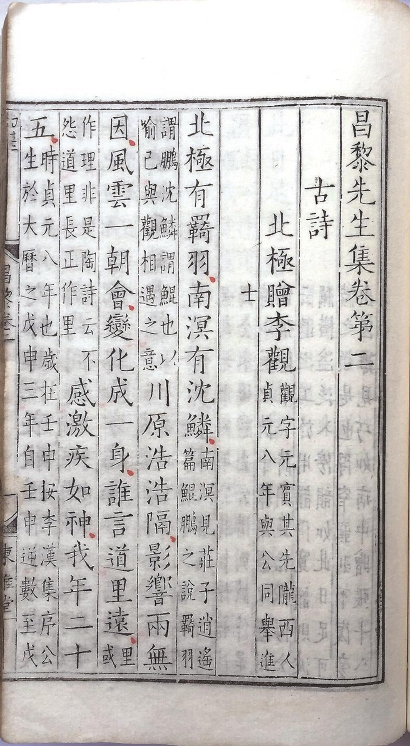 昌黎先生集卷第二
古詩
北極贈李觀
觀字元賓其先隴西人
貞元八年與公同舉進
士
北極有羇羽南溟有沈鱗
南溟見莊子逍遙
篇鯤鵬之說羇羽
謂鵬沈鱗謂鯤也以
喻已與觀相遇之意
川原浩浩隔影響兩無
因風雲一朝會變化成一身誰言道里遠
里
或
作理非是陶詩云不
怨道里長正作里
感激疾如神我年二十
五
時貞元八年也歲在壬申按李漢集序公
生於大曆之戊申三年自壬申逆數至戊
昌黎卷二
東雅堂